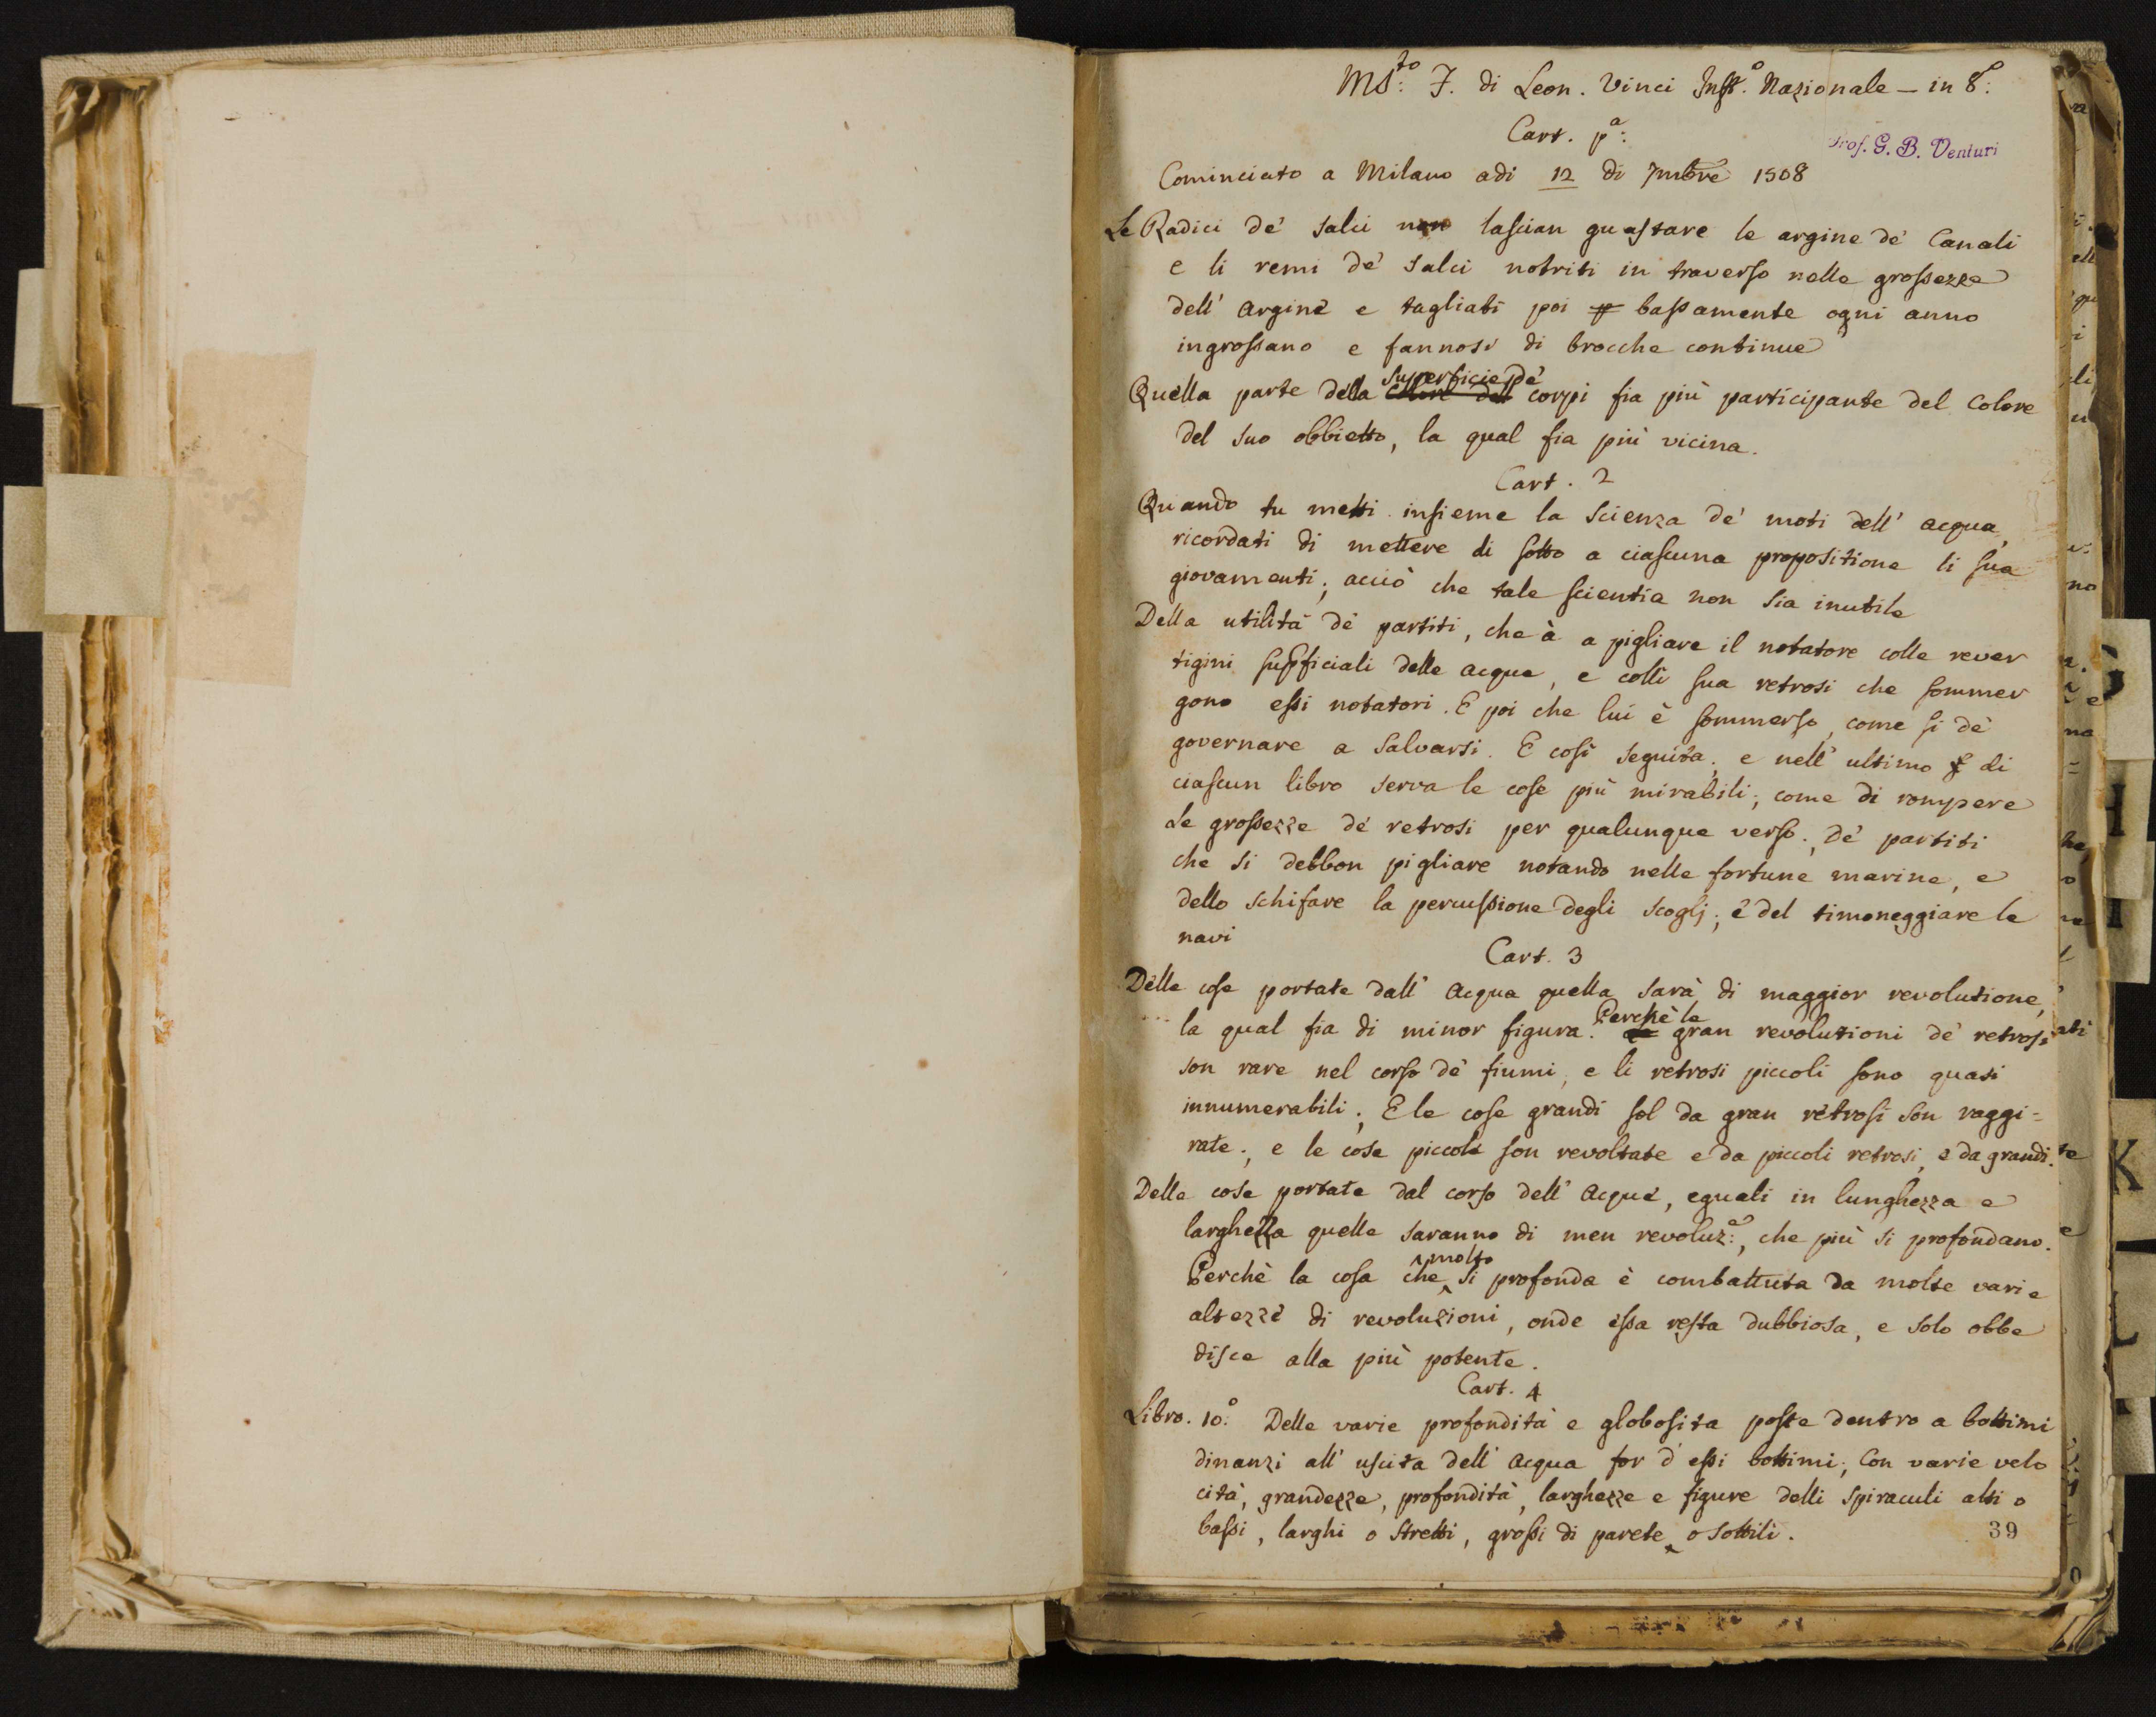 MS.to F. di Leon. Vinci Inst.o Nazionale — in 8.o
Cart. pa:
Prof. G. B. Venturi
Cominciato a Milano adi 12 di 7mbre 1508
Le Radici de' salci non lascian guastare le argine de' Canali
e li remi de' salci notriti in traverso nelle grossezze
dell' argine e tagliati poi bassamente ogni anno
ingrossano e fannosi di brocche continue
Quella parte della superficie de' corpi fia più participante del Colore
del suo obbietto, la qual fia più vicina.
Cart. 2
Quando tu metti insieme la scienza de' moti dell' acqua,
ricordati di mettere di sotto a ciascuna propositione li sua
giovamenti; acciò che tale scientia non sia inutile
Della utilità de' partiti, che à a pigliare il notatore colle rever
tigini supficiali delle acque, e colli sua retrosi che sommer
gono essi notatori. E poi che lui è sommerso, come si de'
governare a salvarsi. E così seguita; e nell' ultimo di
ciascun libro serva le cose più mirabili; come di rompere
Le grossezze de' retrosi per qualunque verso; de' partiti
che si debbon pigliare notando nelle fortune marine, e
dello schifare la percussione degli scoglj; e del timoneggiare le
navi
Cart. 3
Delle cose portate dall' acqua quella sarà di maggior revolutione,
la qual fia di minor figura. Perchè le gran revolutioni de' retrosi
son rare nel corso de' fiumi, e li retrosi piccoli sono quasi
innumerabili; E le cose grandi sol da gran retrosi son raggi=
rate; e le cose piccole son revoltate e da piccoli retrosi, e da grandi.
Delle cose portate dal corso dell' acque, eguali in lunghezza e
larghezza quelle saranno di men revoluz:e, che più si profondano.
Perchè la cosa che molto si profonda è combattuta da molte varie
altezze di revoluzioni, onde essa resta dubbiosa, e solo obbe
disce alla più potente.
Cart. 4
Libro. 10.o Delle varie profondità e globosita poste dentro a bottini
dinanzi all' uscita dell' acqua for d' essi bottini; Con varie velo
cità, grandezze, profondità, larghezze e figure delli spiraculi alti o
bassi, larghi o stretti, grossi di parete o sottili.
39